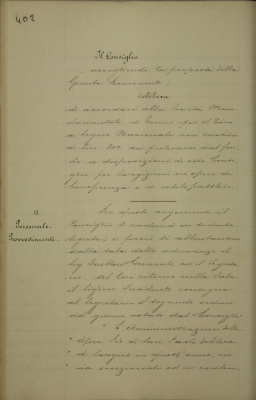 402
Il Consiglio
accogliendo la proposta della
Giunta
delibera
di accordare alla Società Man
damentale di Torino del Tiro
a Segno Nazionale un sussidio
di Lire 200 da prelevarsi dal fon
do a disposizione di esso Consi
glio per largizioni in opere di
beneficenza e di utilità pubblica.
6.
Personale.
Provvedimenti.
Su questo argomento il
Consiglio si raduna in seduta
segreta; e perciò si allontanano
dalla sala delle adunanze il
Sig. Direttore Generale ed il Segreta
rio. Nel loro ritorno nella sala
il Signor Presidente consegna
al Segretario il seguente ordine
del giorno votato dal Consiglio:
" L'Amministrazione delle
" Opere Pie di San Paolo delibera
" di in quest'anno, in
" via eccezionale ed in